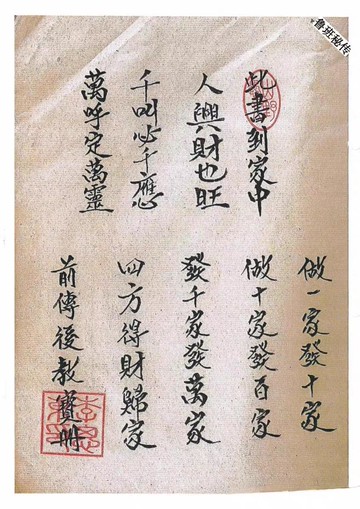 鲁班秘传
此書到家中
人興財也旺
千叫必千應
萬呼定萬靈
做一家發十家
做十家發百家
發千家發萬家
四方得財歸家
前傳後教寶册